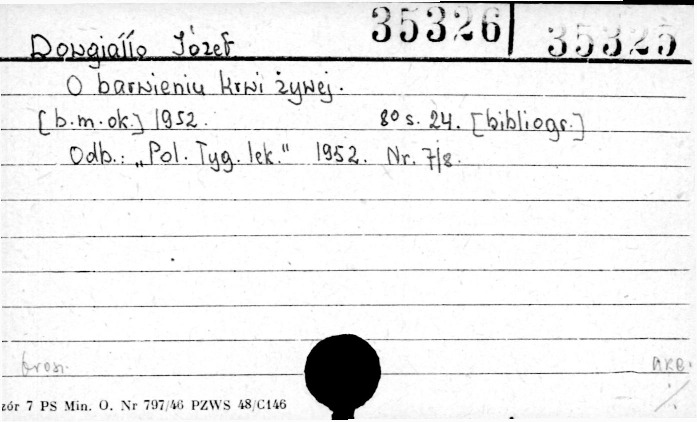 35326 35325
Dowgiałło Józef
O barwieniu krwi żywej.
[b.m.ok.] 1952. 8º s. 24. [bibliogr.]
Odb.: „Pol. Tyg. lek." 1952. Nr. 7/8.
brosz. AKB.
zór 7 PS Min. O. Nr 797/46 PZWS 48/C146